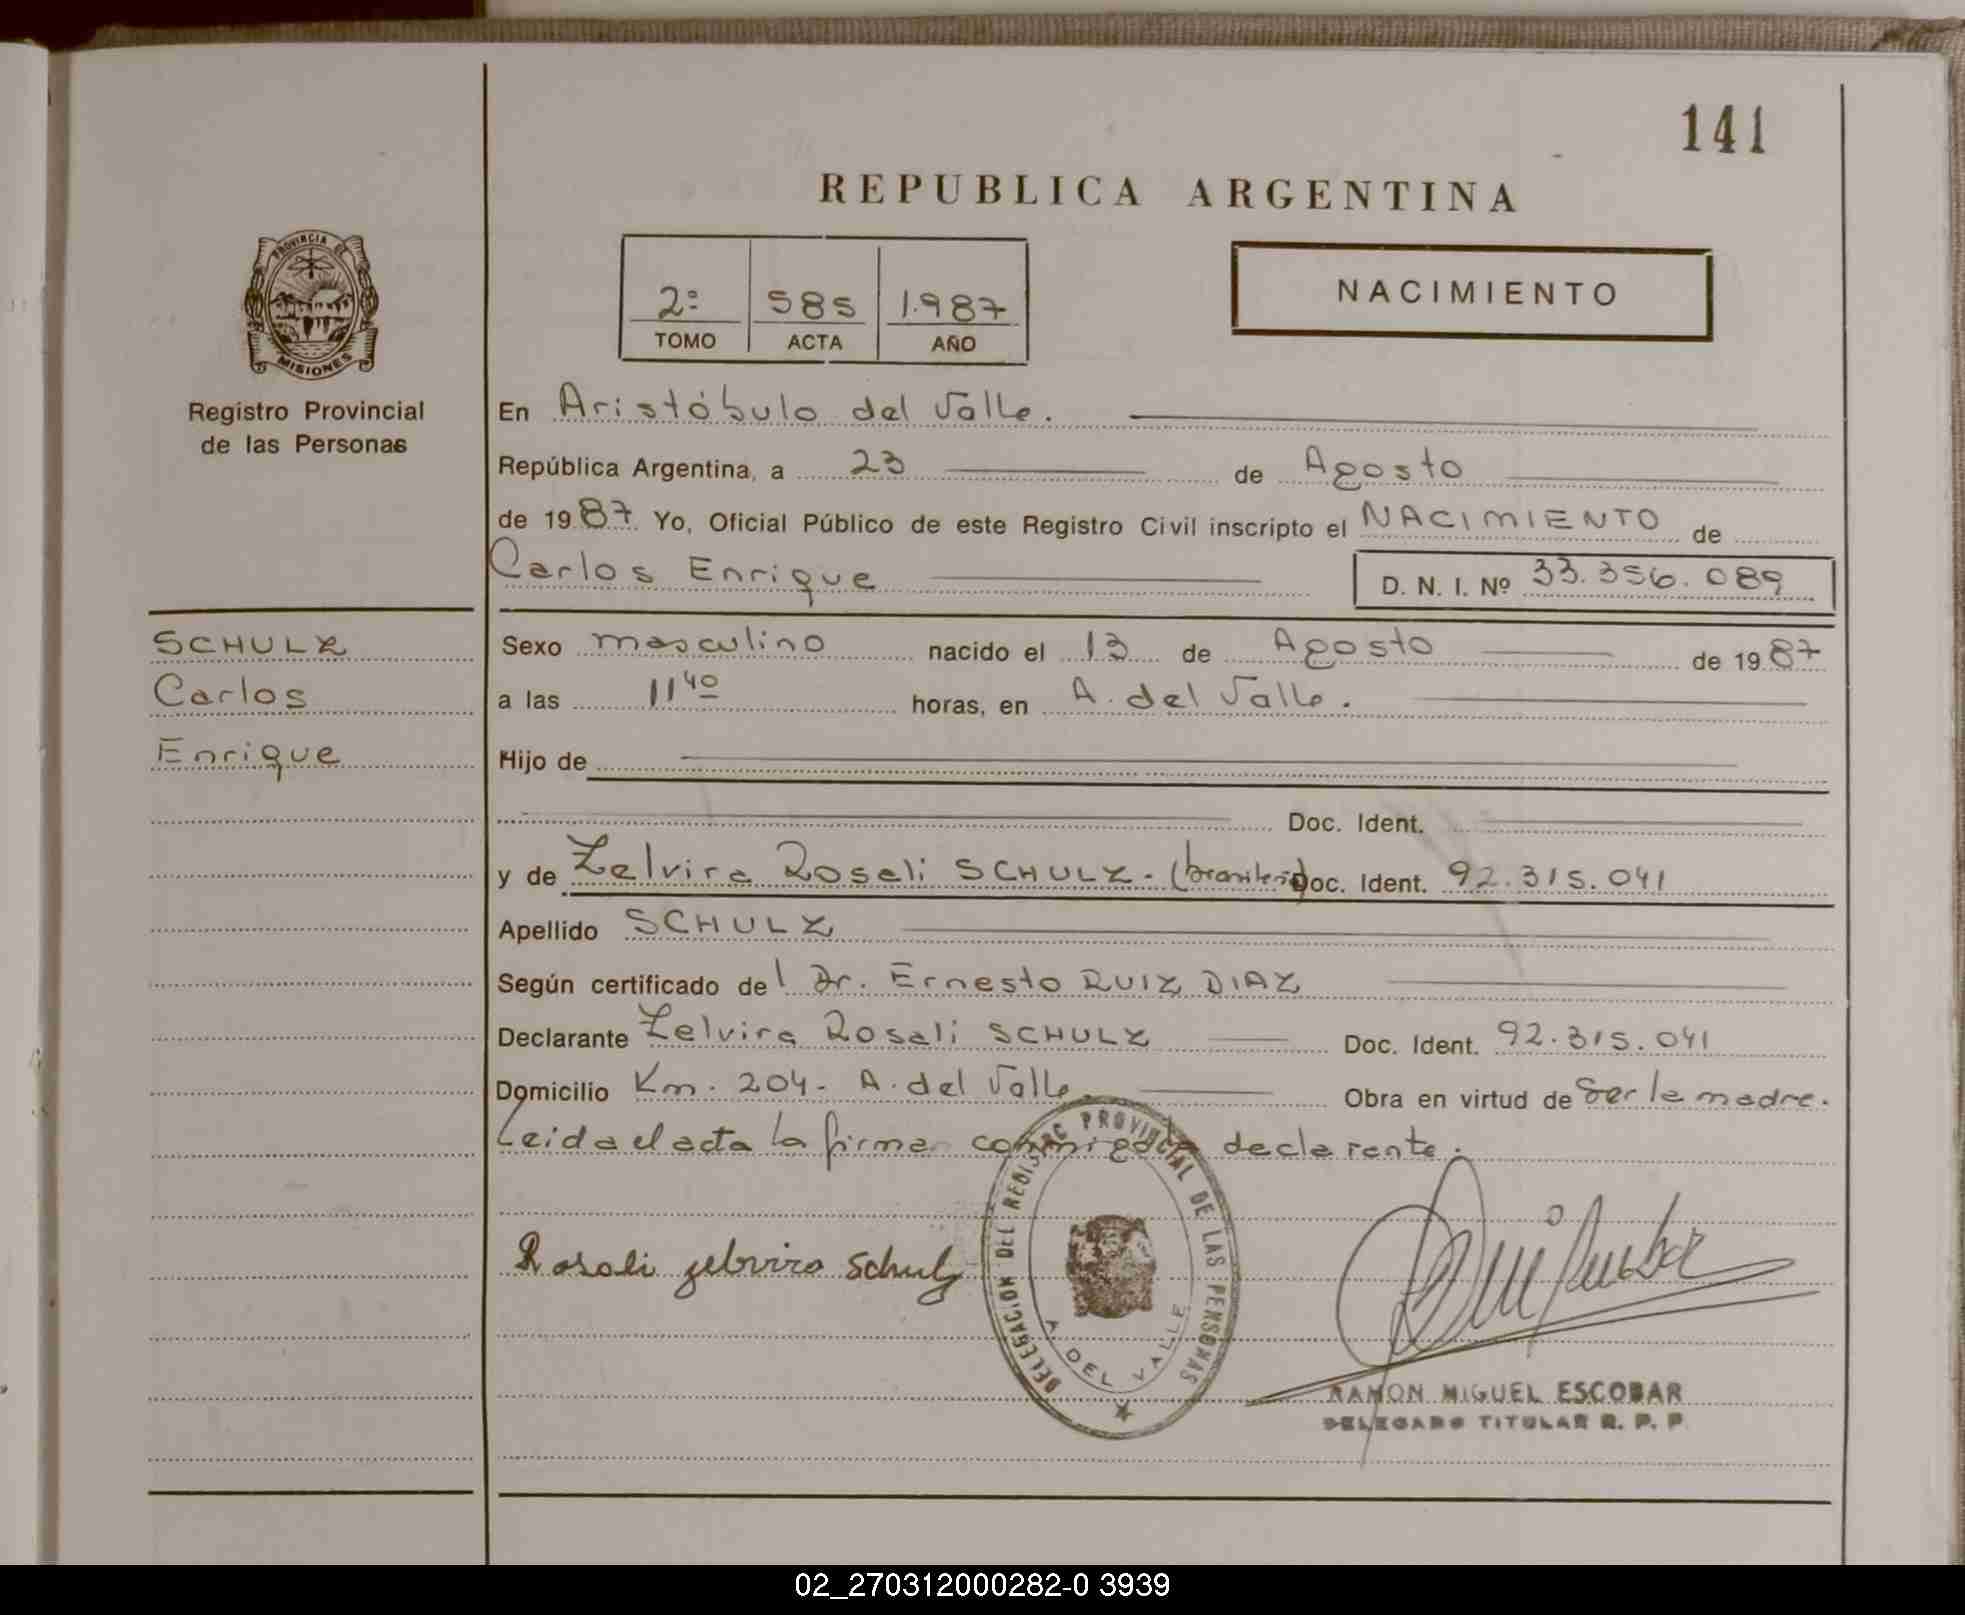 141
REPUBLICA ARGENTINA
PROVINCIA DE
MISIONES
Registro Provincial
de las Personas
2º 585 1.987
TOMO ACTA AÑO
NACIMIENTO
En Aristóbulo del Valle.
República Argentina, a 23 de Agosto
de 1987 Yo, Oficial Público de este Registro Civil inscripto el NACIMIENTO de
Carlos Enrique D. N. I. Nº 33.356.089
SCHULZ
Carlos
Enrique
Sexo masculino nacido el 13 de Agosto de 1987
a las 11 40 horas, en A. del Valle.
Hijo de
Doc. Ident.
y de Zelvira Rosali SCHULZ. (brasileña) Doc. Ident. 92.315.041
Apellido SCHULZ
Según certificado del Dr. Ernesto RUIZ DIAZ
Declarante Zelvira Rosali SCHULZ Doc. Ident. 92.315.041
Domicilio Km. 204. A. del Valle. Obra en virtud de ser la madre.
Leida el acta la firman conmigo la declarante.
DELEGACION DEL REGISTRO PROVINCIAL DE LAS PERSONAS
A. DEL VALLE
Rosali zelvira Schulz
RAMON MIGUEL ESCOBAR
DELEGADO TITULAR R. P. P.
02_270312000282-0 3939